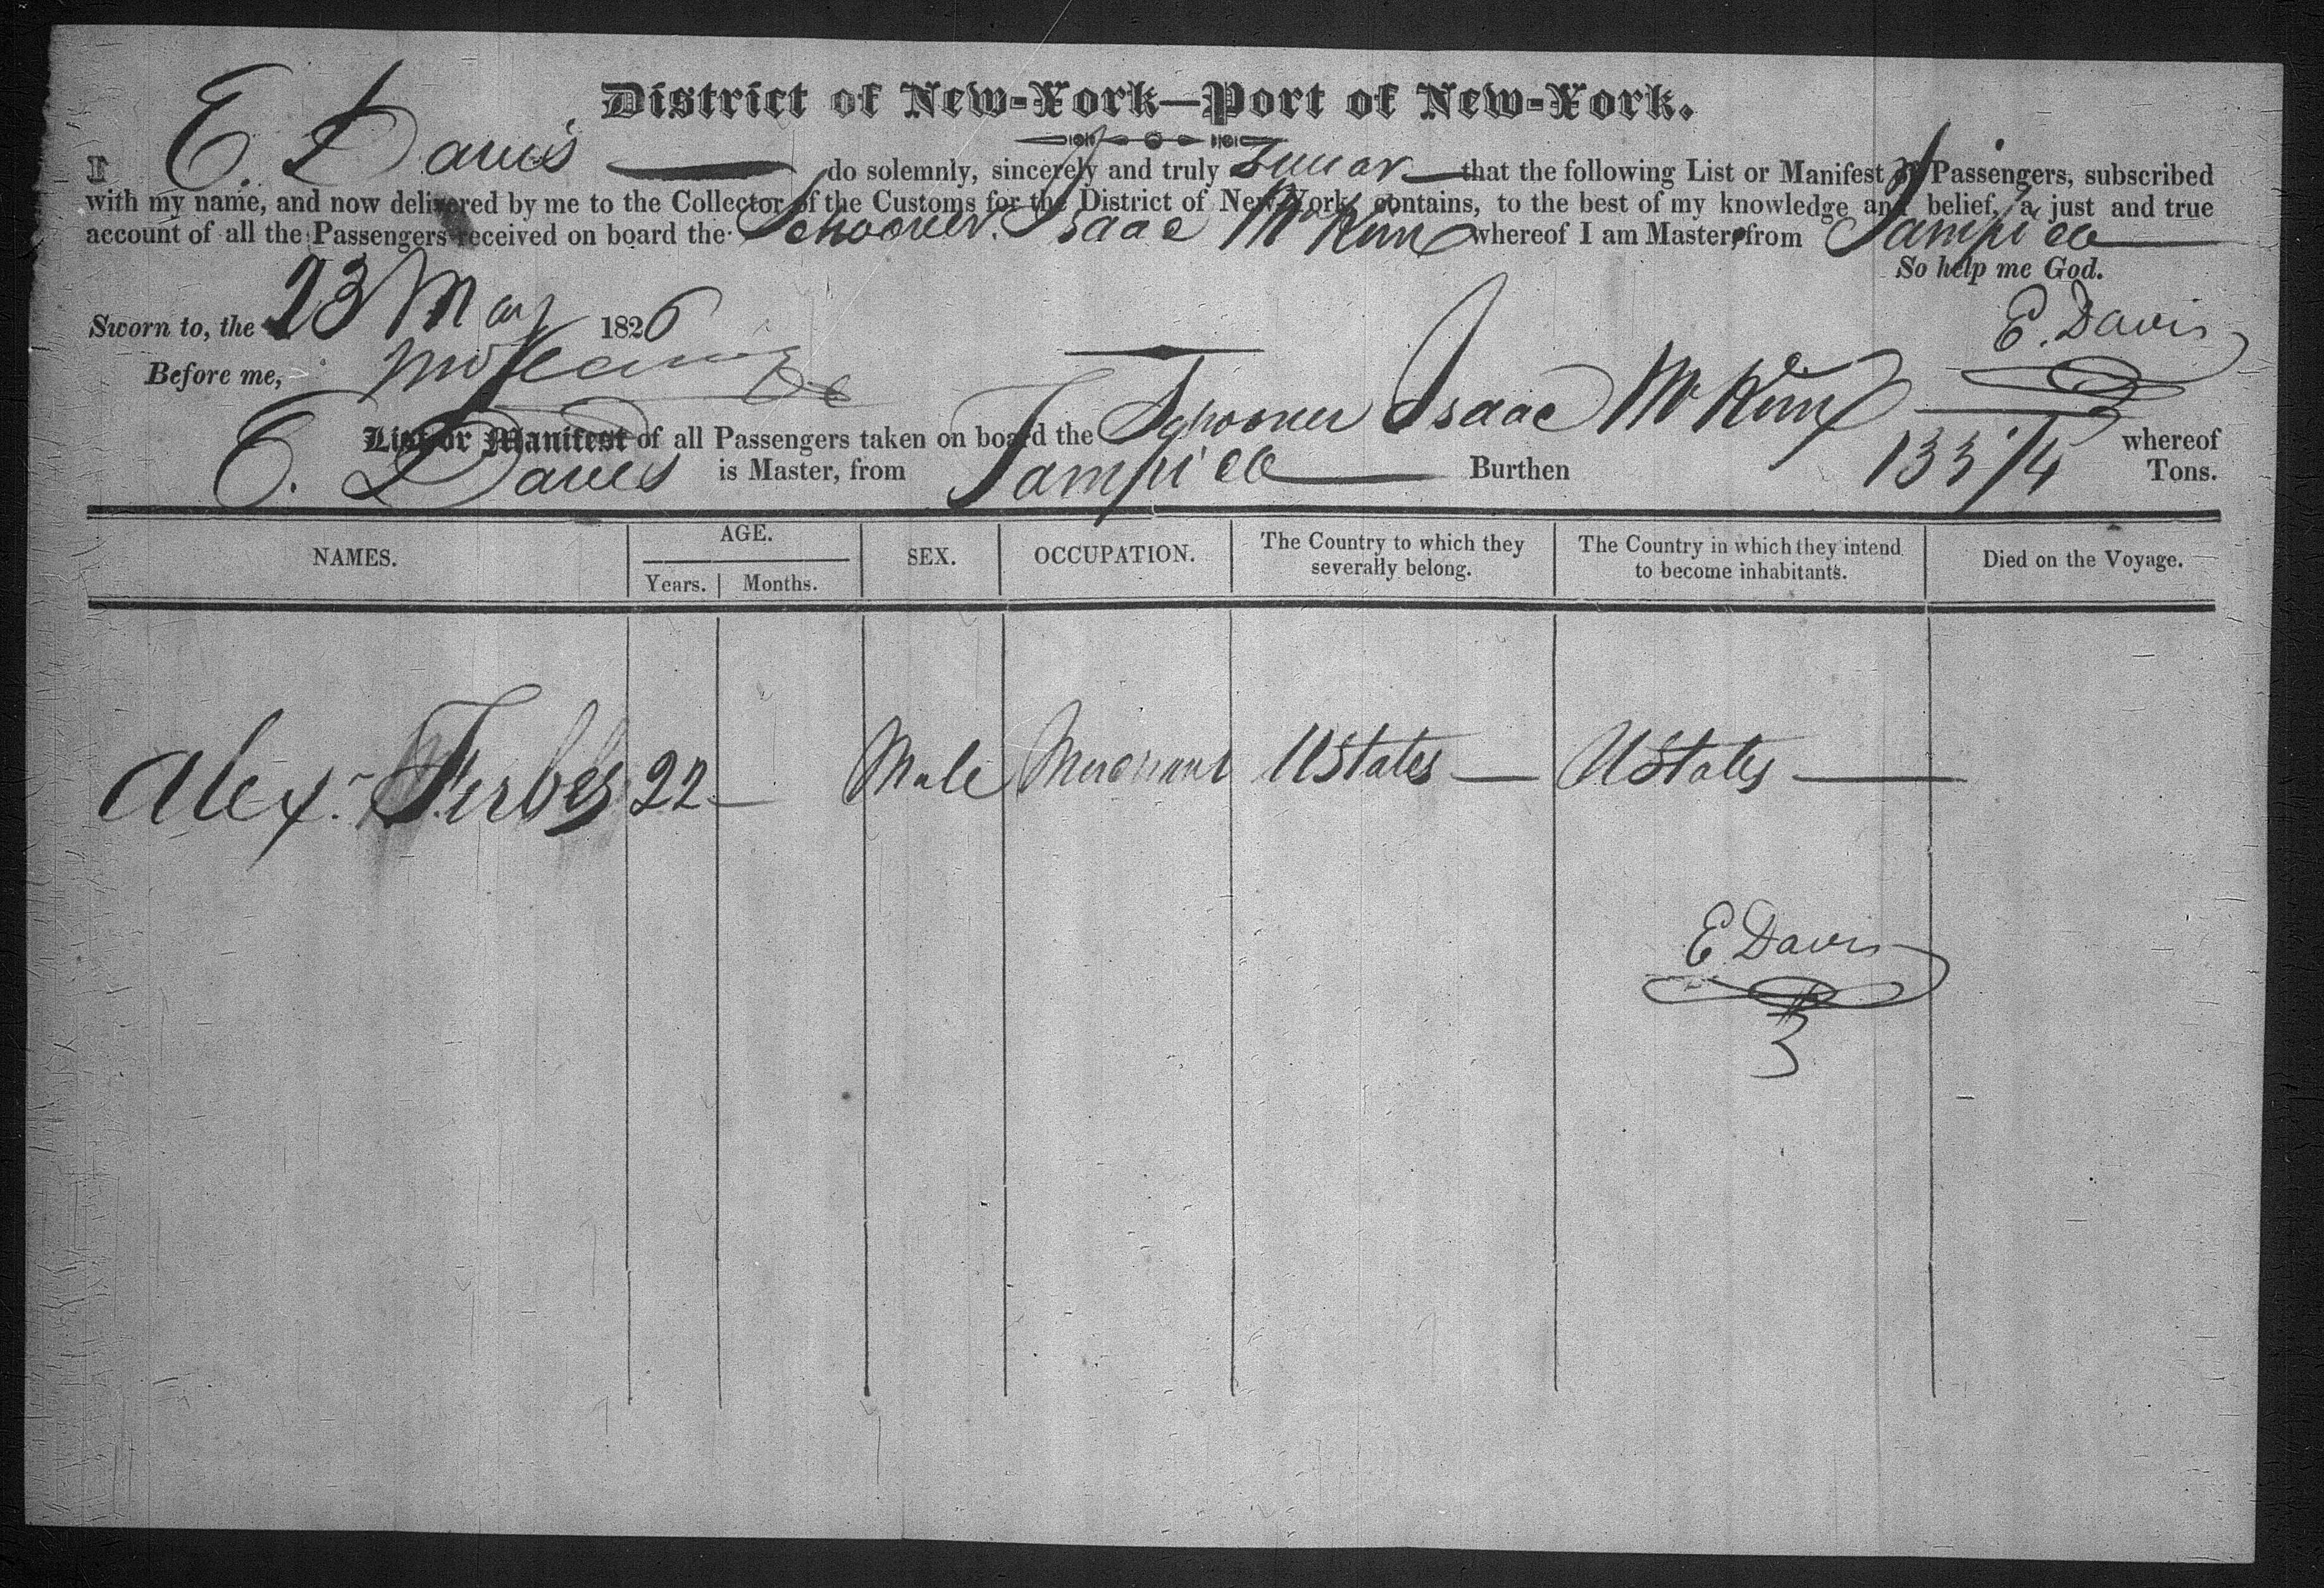 District of New-York—Port of New-York.
I E. Davis do solemnly, sincerely and truly swear that the following List or Manifest of Passengers, subscribed
with my name, and now delivered by me to the Collector of the Customs for the District of New-York, contains, to the best of my knowledge and belief, a just and true
account of all the Passengers received on board the Schooner Isaac McKim whereof I am Master, from Tampico
So help me God.
Sworn to, the 23 May 1826
E. Davis
Before me,
List or Manifest of all Passengers taken on board the Schooner Isaac McKim whereof
E. Davis is Master, from Tampico Burthen Tons.
NAMES. AGE. SEX. OCCUPATION. The Country to which they severally belong. The Country in which they intend to become inhabitants. Died on the Voyage.
Years. Months.
Alex. 22 Male Merchant UStates UStates
E Davis